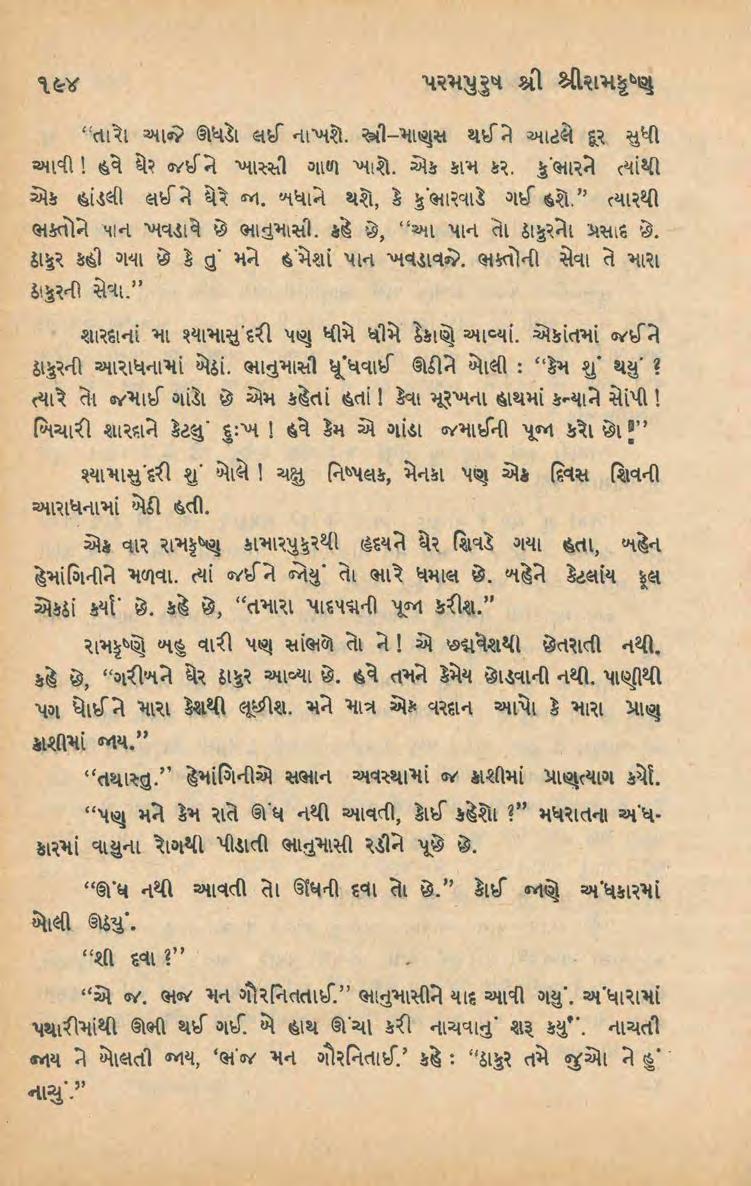 ૧૯૪ પરમપુરુષ શ્રી શ્રીરામકૃષ્ણ
“તારો આજે ઊધડો લઈ નાખશે. સ્ત્રી–માણુસ થઈને આટલે દૂર સુધી
આવી ! હવે ઘેર જઈને ખાસ્સી ગાળ ખાશે. એક કામ કર. કુંભારને ત્યાંથી
એક હાંડલી લઈને ઘેરે જા. બધાને થશે, કે કુંભારવાડે ગઈ હશે.” ત્યારથી
ભક્તોને પાન ખવડાવે છે ભાનુમાસી. કહે છે, “આ પાન તો ઠાકુરનો પ્રસાદ છે.
ઠાકુર કહી ગયા છે કે તું મને હંમેશાં પાન ખવડાવજે. ભક્તોની સેવા તે મારા
ઠાકુરની સેવા.”
શારદાનાં મા શ્યામાસુંદરી પણ ધીમે ધીમે ઠેકાણે આવ્યાં. એકાંતમાં જઈને
ઠાકુરની આરાધનામાં બેઠાં. ભાનુમાસી ધૂંધવાઈ ઊઠીને બોલી : “કેમ શું થયું ?
ત્યારે તો જમાઈ ગાંડો છે એમ કહેતાં હતાં ! કેવા મૂરખના હાથમાં કન્યાને સોંપી !
બિચારી શારદાને કેટલું દુઃખ ! હવે કેમ એ ગાંડા જમાઈની પૂજા કરો છો !”
શ્યામાસુંદરી શું બોલે ! ચક્ષુ નિષ્પલક, મેનકા પણ એક દિવસ શિવની
આરાધનામાં બેઠી હતી.
એક વાર રામકૃષ્ણ કામારપુકુરથી હૃદયને ઘેર શિવડે ગયા હતા, બહેન
હેમાંગિનીને મળવા. ત્યાં જઈને જોયું તો ભારે ધમાલ છે. બહેને કેટલાંય ફૂલ
એકઠાં કર્યાં છે. કહે છે, “તમારા પાદપદ્મની પૂજા કરીશ.”
રામકૃષ્ણે બહુ વારી પણ સાંભળે તો ને ! એ છદ્મવેશથી છેતરાતી નથી.
કહે છે, “ગરીબને ઘેર ઠાકુર આવ્યા છે. હવે તમને કેમેય છોડવાની નથી. પાણીથી
પગ ધોઈને મારા કેશથી લૂછીશ. મને માત્ર એક વરદાન આપો કે મારા પ્રાણ
કાશીમાં જાય.”
“તથાસ્તુ.” હેમાંગિનીએ સભાન અવસ્થામાં જ કાશીમાં પ્રાણત્યાગ કર્યો.
“પણ મને કેમ રાતે ઊંઘ નથી આવતી, કોઈ કહેશો ?” મધરાતના અંધ-
કારમાં વાયુના રોગથી પીડાતી ભાનુમાસી રડીને પૂછે છે.
“ઊંઘ નથી આવતી તો ઊંઘની દવા તો છે.” કોઈ જાણે અંધકારમાં
બોલી ઊઠ્યું.
“શી દવા ?”
“એ જ. ભજ મન ગૌરનિતતાઈ.” ભાનુમાસીને યાદ આવી ગયું. અંધારામાં
પથારીમાંથી ઊભી થઈ ગઈ. બે હાથ ઊંચા કરી નાચવાનું શરૂ કર્યું. નાચતી
જાય ને બોલતી જાય, ‘ભંજ મન ગૌરનિતાઈ.’ કહે : “ઠાકુર તમે જુઓ ને હું
નાચું.”